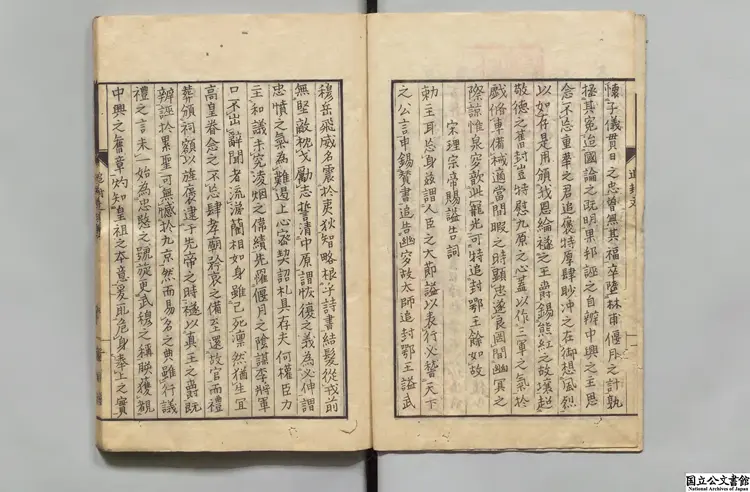 懷子儀貫日之忠曾無其福卒墮林甫偃月之計孰
拯其冤逮國論之既明果邦誣之自辨中興之主思
念不忘重華之君追褒特厚肆眇沖之在御想風烈
以如存是用頒我恩綸襚之王爵錫熊紅之故壤超
敬德之舊封豈特慰九原之心蓋以作三軍之氣於
戲脩車備械適當閒暇之時顯忠遂良罔間幽冥之
際諒惟泉穸歆此寵光可特追封鄂王餘如故
宋理宗帝賜謚告詞
勅主耳忘身茲謂人臣之大節謚以表行必天下
之公言申錫賛書追告幽穸故太師追封鄂王謚武
穆岳飛威名震於夷狄智略根乎詩書結髮從戎前
無堅敵枕戈勵志誓清中原謂恢復之義為必伸謂
忠憤之氣為難遏上心密契詔札具存夫何權臣力
主和議未究凌烟之偉績先羅偃月之陰謀李將軍
口不出辭聞者流涕藺相如身雖已死凜然猶生宜
高皇眷念之不忘肆孝廟矜哀之備至還故官而禮
葬頒祠額以旌褒逮于先帝之時襚以真王之爵既
辨誣於累聖可無憾於九京然而易名之典雖行議
禮之言未一始為忠愍之號旋更武穆之稱朕獲覩
中興之舊章灼知皇祖之本意爰取危身奉上之實
国立公文書館
National Archives of Japan